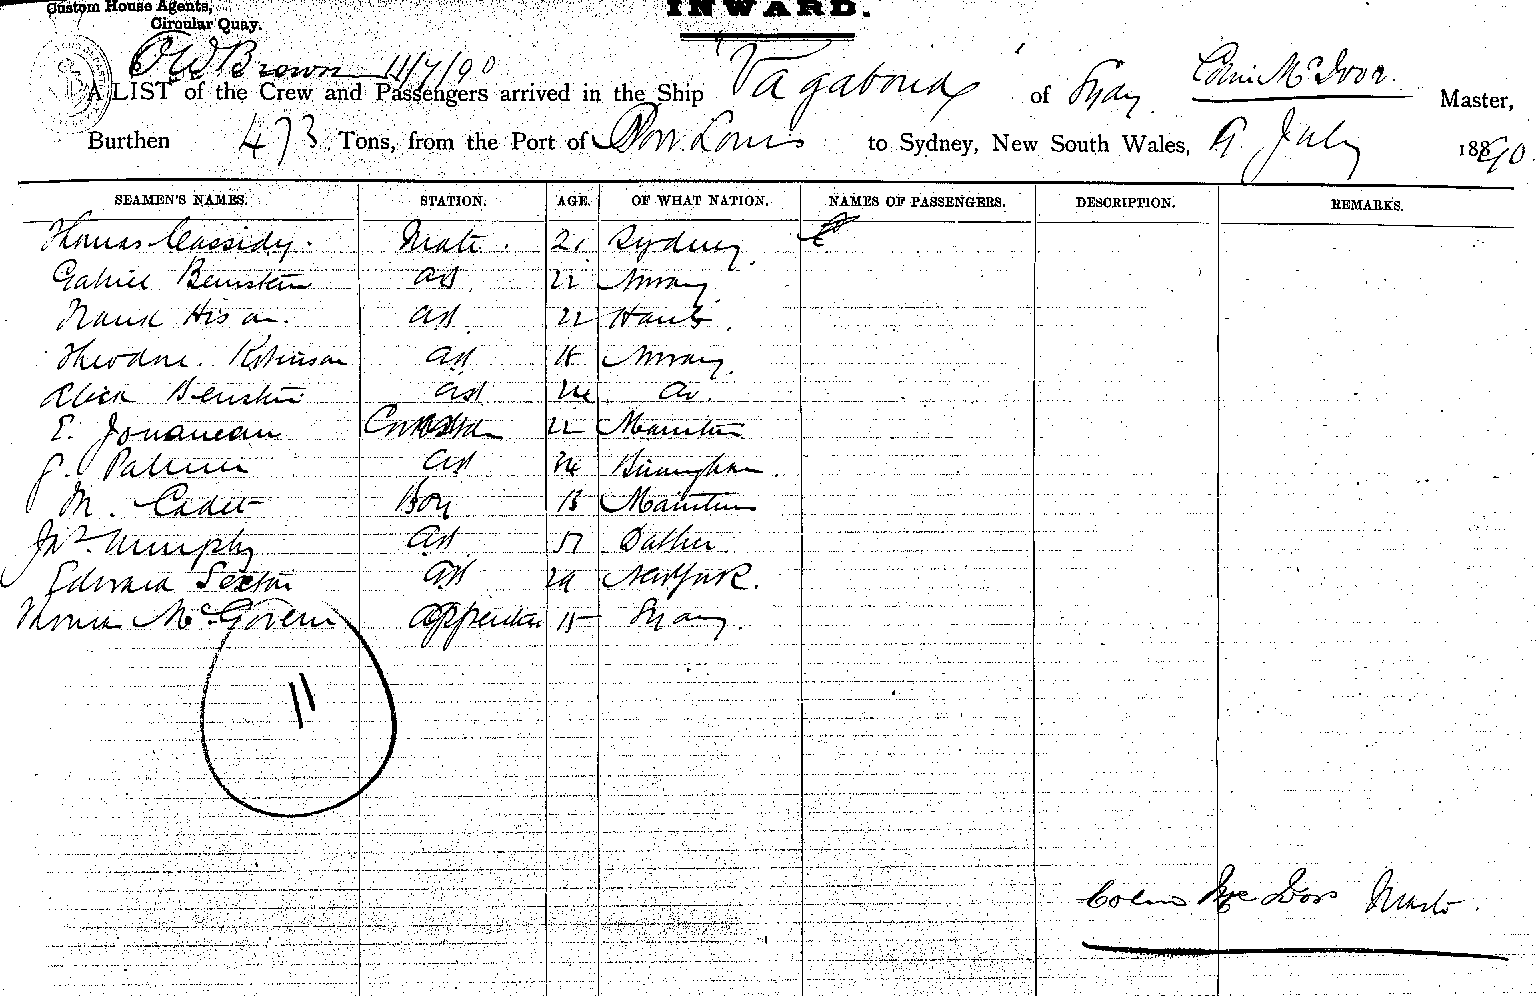 Custom House Agents,
INWARD.
Circular Quay.
Brown 11/7/90
A LIST of the Crew and Passengers arrived in the Ship "Vagabond" of Sydney Colin McIvor. Master,
Burthen 473 Tons, from the Port of Port Louis to Sydney, New South Wales, 9 July 1890
SEAMEN'S NAMES. STATION. AGE. OF WHAT NATION. NAMES OF PASSENGERS. DESCRIPTION. REMARKS.
Thomas Cassidy. Mate. 21 Sydney.
Gabriel AB 22 Norway
AB 22 Hamb.
Theodore. Robinson AB 18 Norway.
AB
E. 22 Mauritius
Palmer AB Birmingham.
M. Cadet Boy 18 Mauritius
Jno. Murphy AB 51
Edward Sexton AB 29 New York.
Thomas McGovern apprentice 15 Sydney.
11
Colin McIvor Master.